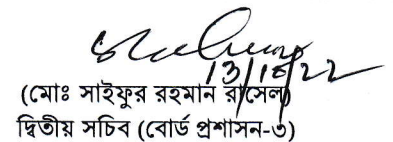 13/10/22
(মোঃ সাইফুর রহমান রাসেল)
দ্বিতীয় সচিব (বোর্ড প্রশাসন-৩)